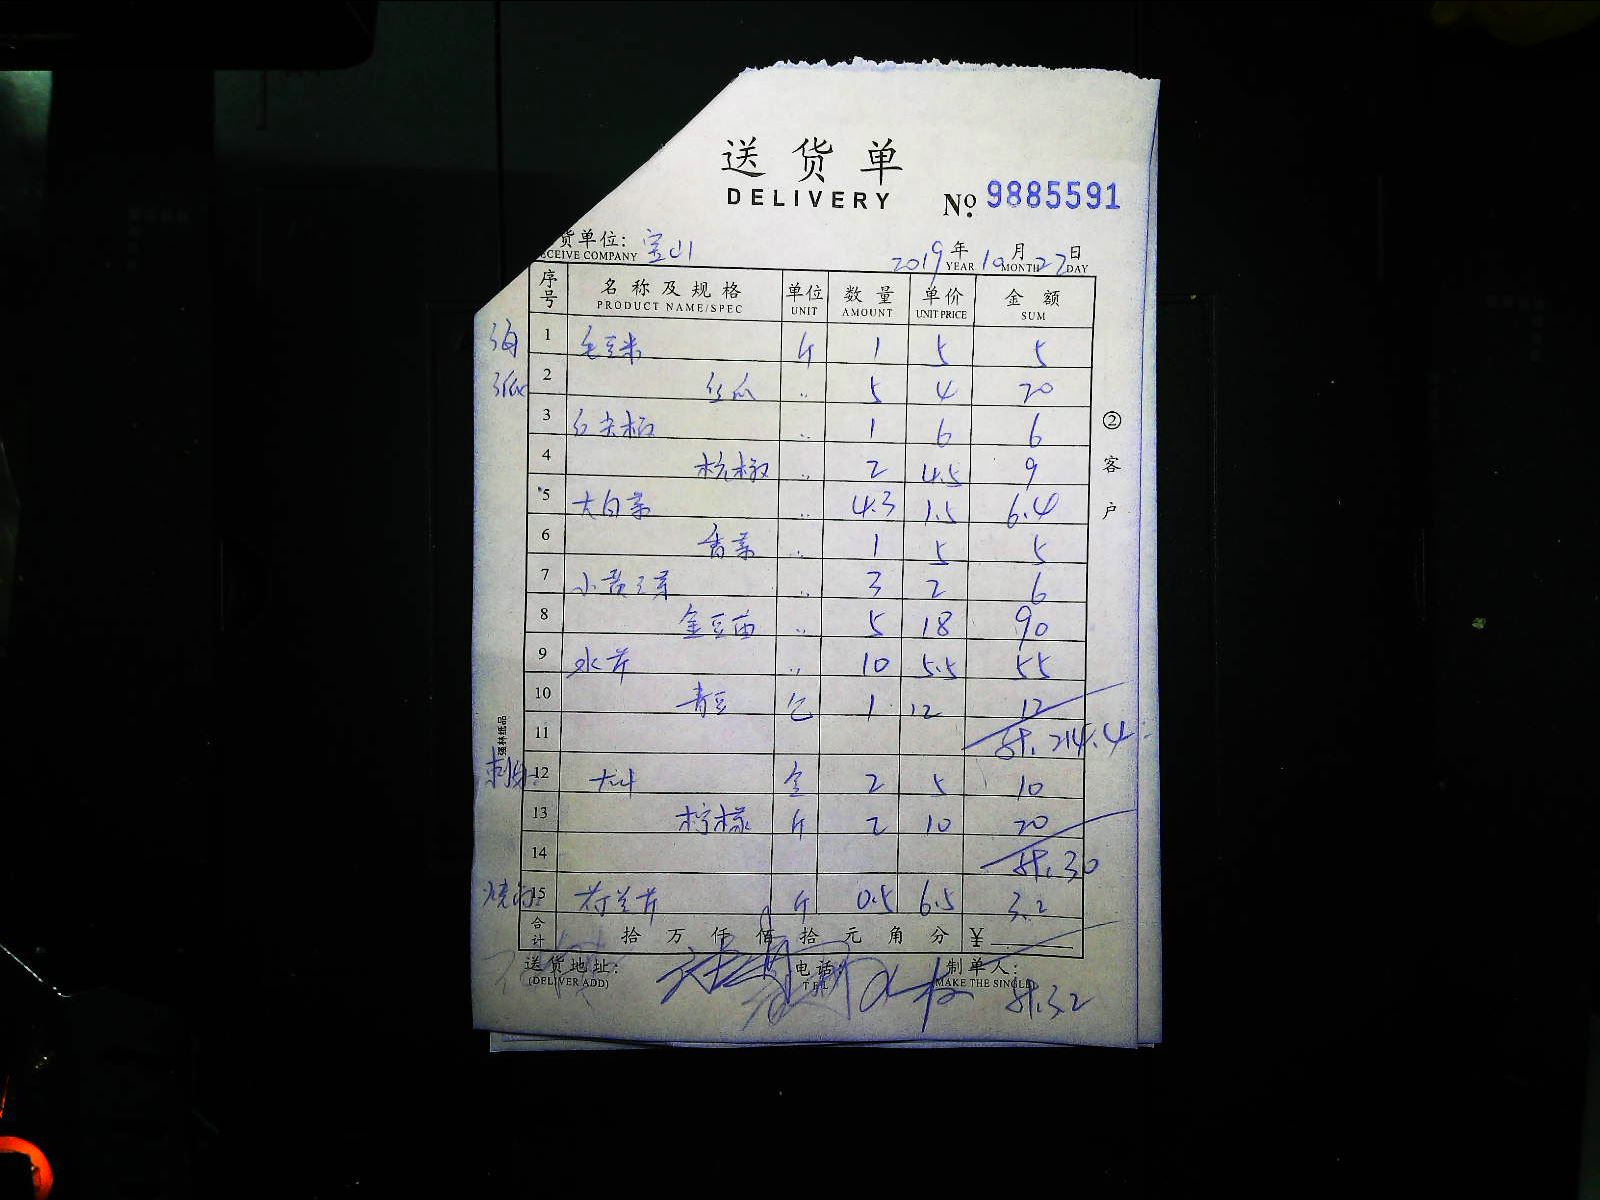 送货单
DELIVERY
No. 9885591
货单位: 宝山 2019年10月27日
CEIVE COMPANY YEAR MONTH DAY
序号 名称及规格 单位 数量 单价 金额
PRODUCT NAME/SPEC UNIT AMOUNT UNIT PRICE SUM
1 毛豆米 斤 1 5 5
2 丝瓜 〃 5 4 20
3 红尖椒 〃 1 6 6
4 杭椒 〃 2 4.5 9
5 大白菜 〃 4.3 1.5 6.4
6 香菜 〃 1 5 5
7 小黄三菜 〃 3 2 6
8 金豆苗 〃 5 18 90
9 水芹 〃 10 5.5 55
10 青豆 包 1 12 12
11 计. 214.4
刺身: 12 大叶 盒 2 5 10
13 柠檬 斤 2 10 20
14 计. 30
15 荷兰芹 斤 0.5 6.5 3.2
合计 拾 万 仟 佰 拾 元 角 分 ¥
送货地址: 电话: 制单人:
(DELIVER ADD) TEL MAKE THE SINGLE
计. 3.2
②客户
强林纸品